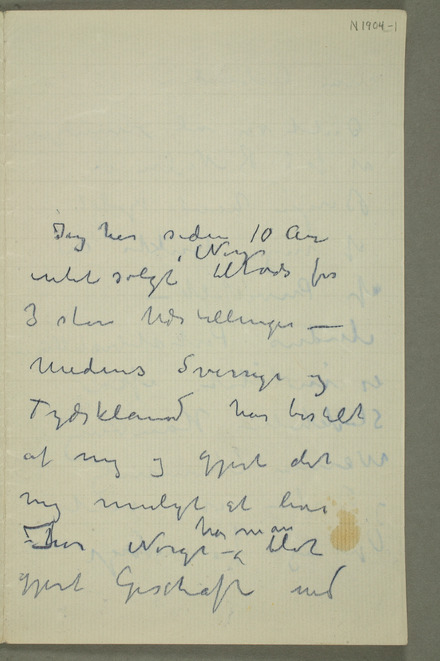 N 1904-1
Jeg har siden 10 Aar
i Norg
intet solgt tiltrods for
3 store Udstillinger —
medens Sverrige og
Tydskland har bestilt
af mig og gjort det
mig muligt at leve
har man
Norge blot
gjort Geschæft med